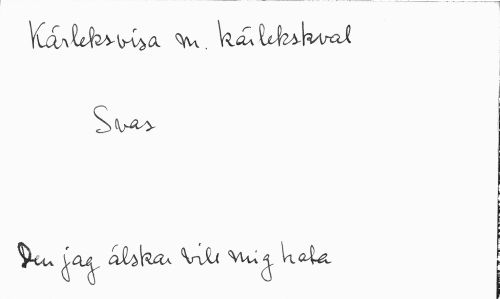 Kärleksvisa m. kärlekskval
Svas
Den jag älskar vill mig hata